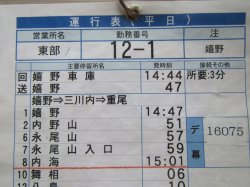 運行表(平日)
営業所名 勤務番号 注
東部/ 12-1 嬉野
主要停留所名 発時刻 接続その他
回 嬉野車庫 14:44 所要:3分
送 嬉野 47
嬉野⇒三川内⇒重尾
1 嬉野 14:47
2 内野山 51 デ 16075
6 永尾山 57
7 永尾山入口 59 幕
8 内海 15:01
10 舞相 06
10